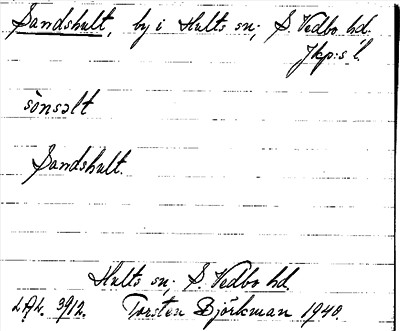 Sandshult, by i Hults sn; S. Vedbo hd.
Jkp:s l.
sonsəlt
Sandshult.
Hults sn. S. Vedbo hd
L.A.L. 3912. Torsten Björkman 1940.